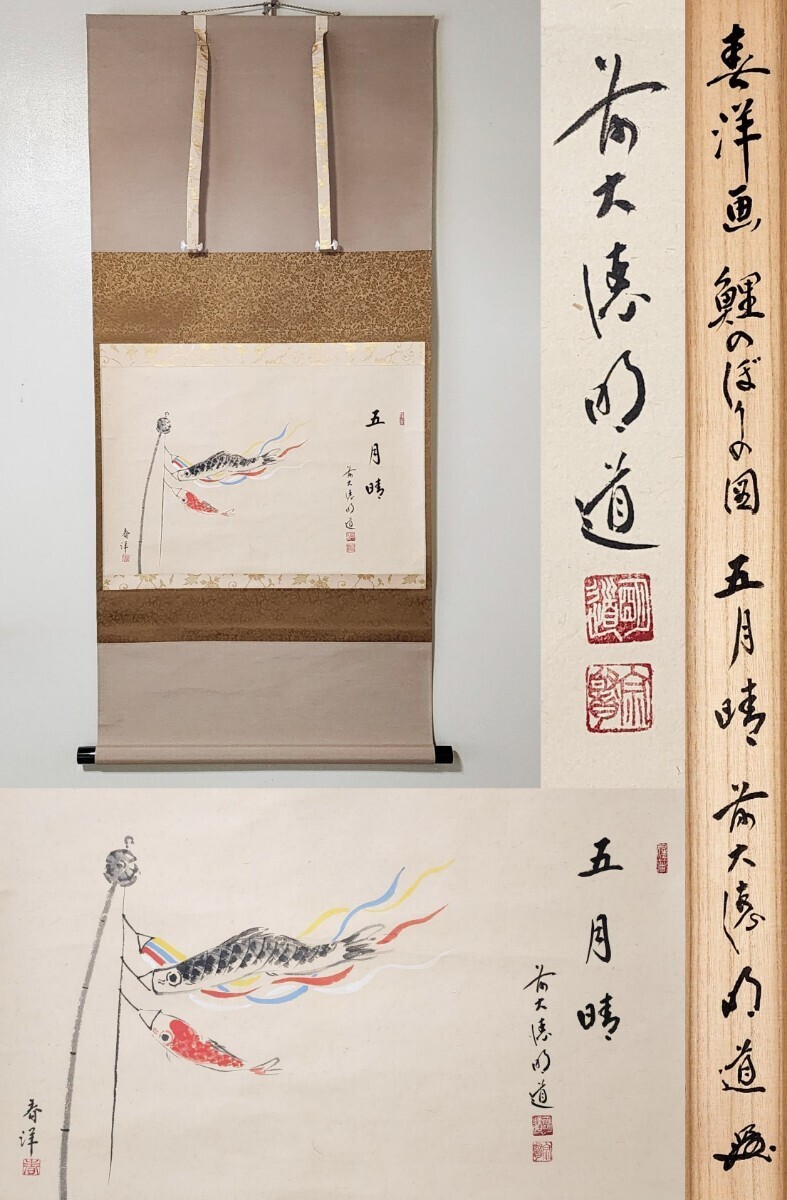 五月晴
前大徳明道
春洋
前大徳明道
明道
春洋画 鯉のぼりの図 五月晴 前大徳明道
五月晴
前大徳明道
春洋